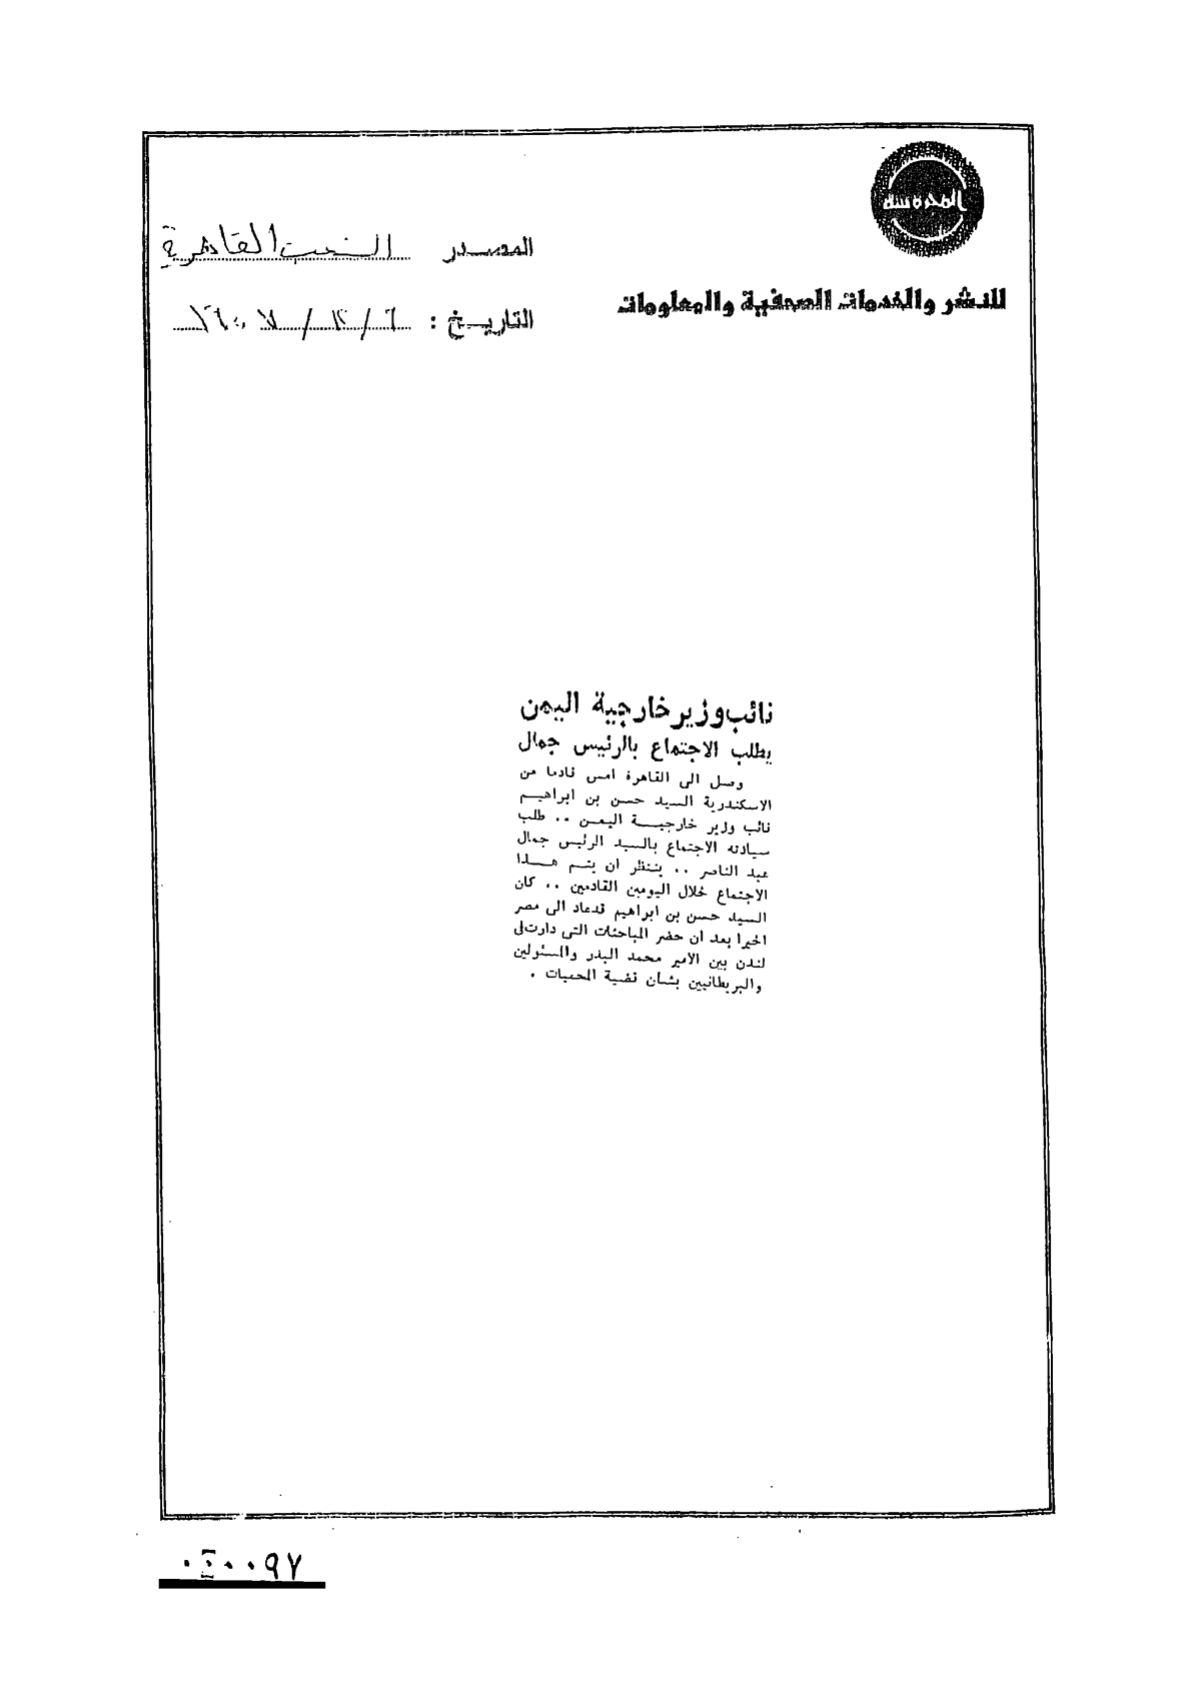 المحروسة
للنشر والخدمات الصحفية والمعلومات
المصدر الشعب القاهرية
التاريخ : ٦ / ١٢ /
نائب وزير خارجية اليمن
يطلب الاجتماع بالرئيس جمال
وصل الى القاهرة امس قادما من
الاسكندرية السيد حسن بن ابراهيم
نائب وزير خارجية اليمن .. طلب
سيادته الاجتماع بالسيد الرئيس جمال
عبد الناصر .. ينتظر ان يتم هذا
الاجتماع خلال اليومين القادمين .. كان
السيد حسن بن ابراهيم قد عاد الى مصر
اخيرا بعد ان حضر المباحثات التى دارت فى
لندن بين الامير محمد البدر والمسئولين
والبريطانيين بشان قضية المحميات .
٠٤٠٠٩٧